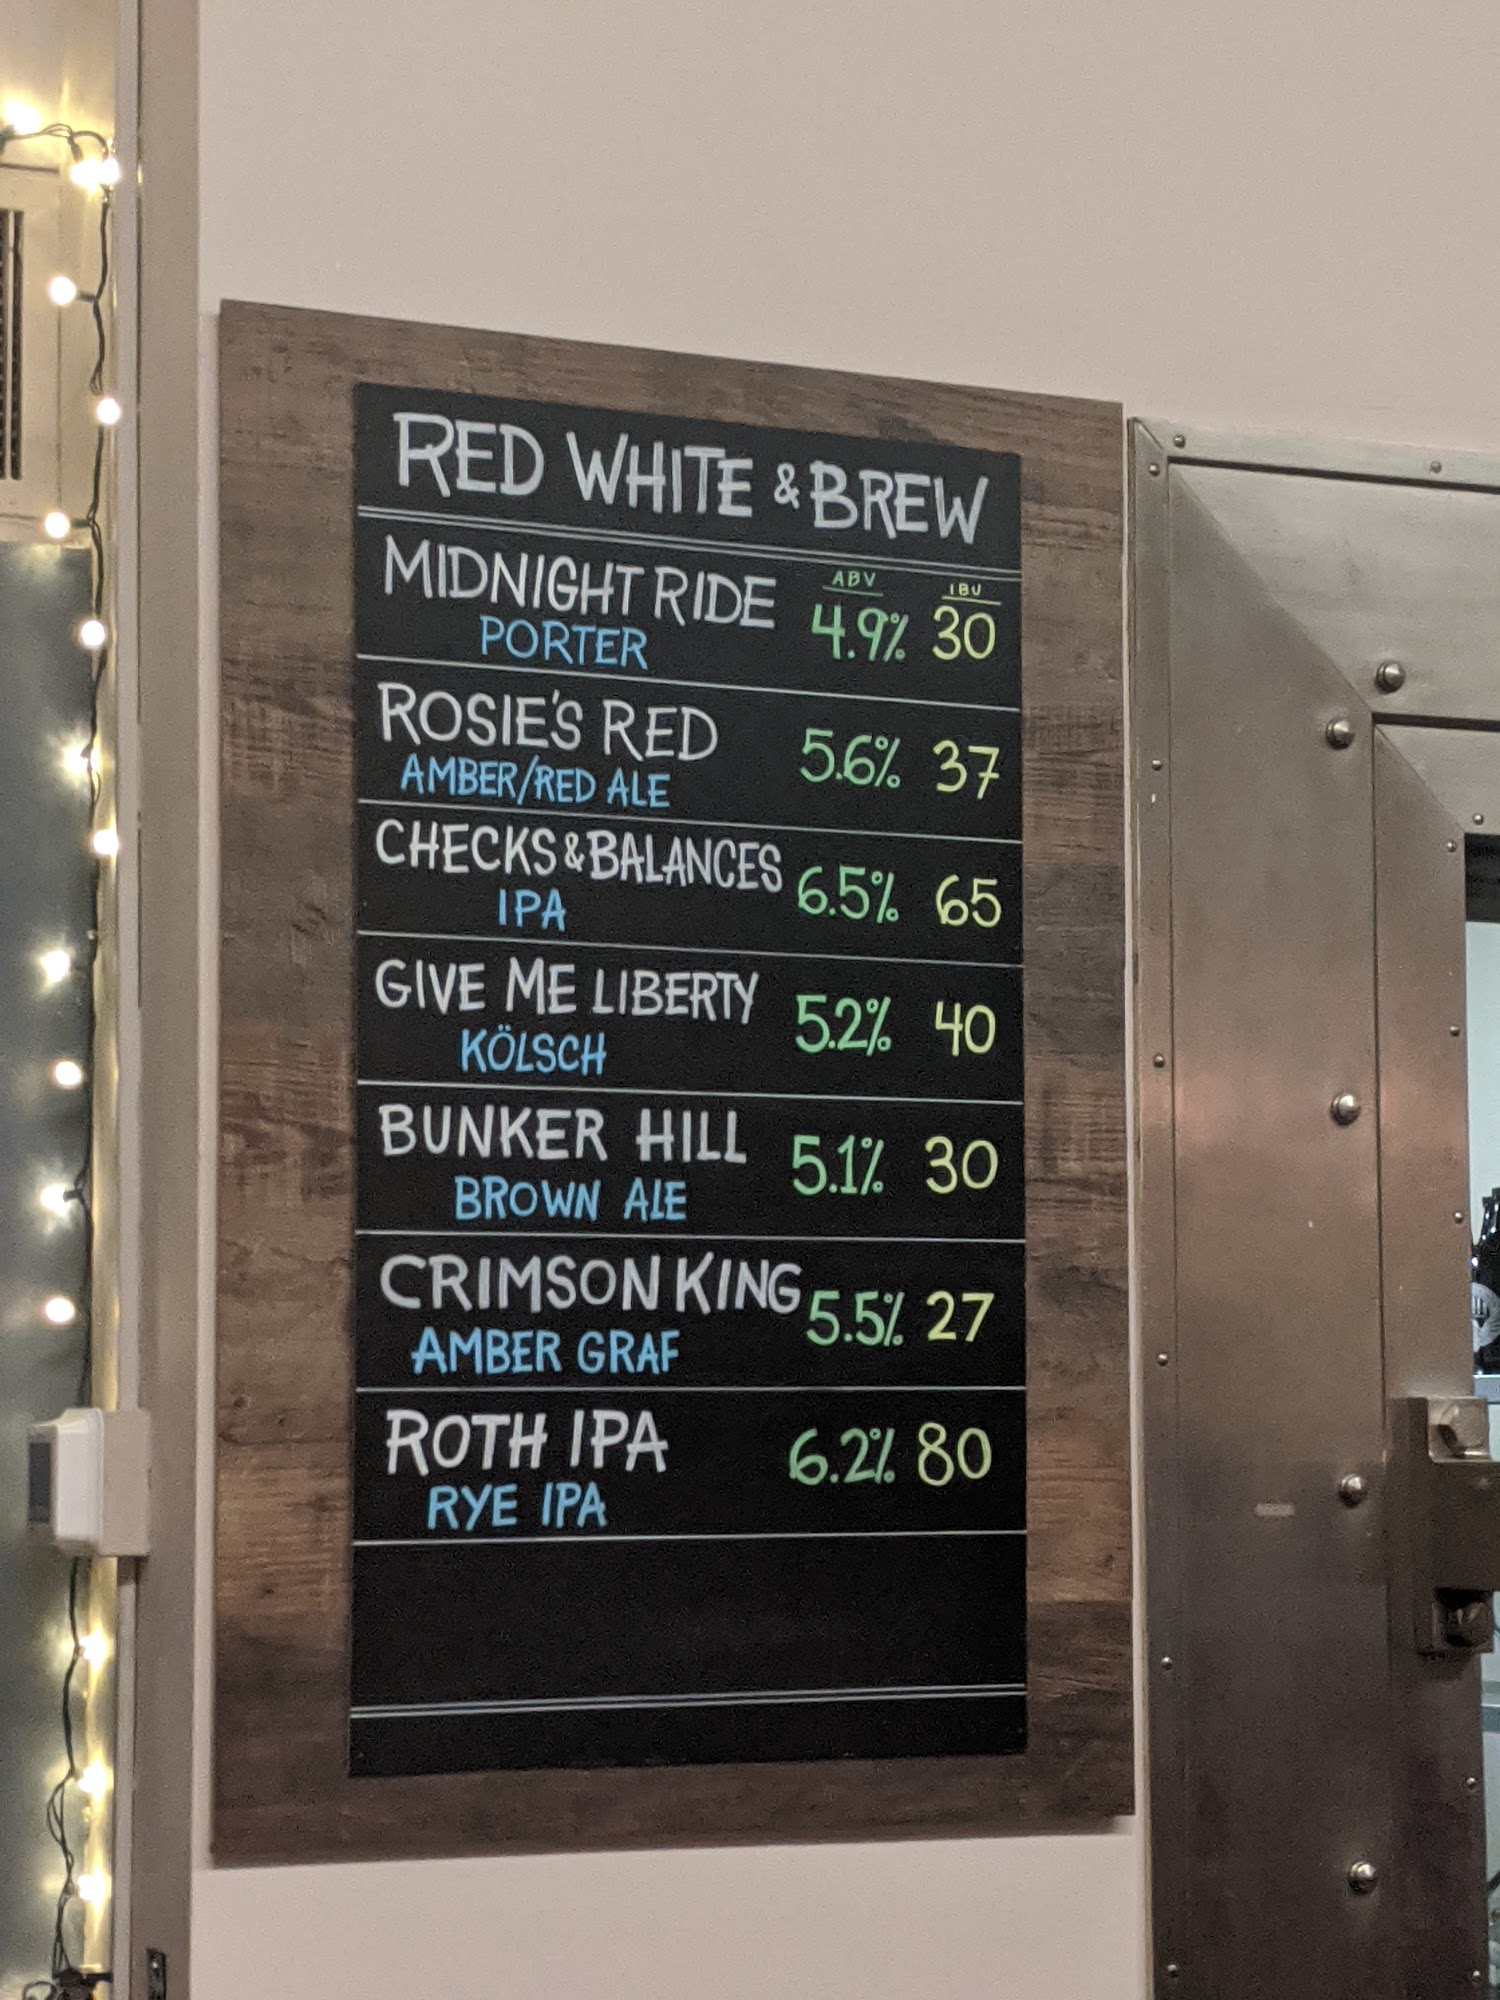 RED WHITE & BREW
ABV IBU
MIDNIGHT RIDE 4.9% 30
PORTER
ROSIE'S RED 5.6% 37
AMBER/RED ALE
CHECKS & BALANCES 6.5% 65
IPA
GIVE ME LIBERTY 5.2% 40
KÖLSCH
BUNKER HILL 5.1% 30
BROWN ALE
CRIMSON KING 5.5% 27
AMBER GRAF
ROTH IPA 6.2% 80
RYE IPA